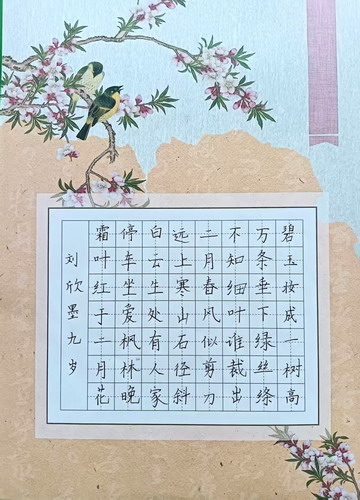 碧玉妆成一树高
万条垂下绿丝绦
不知细叶谁裁出
二月春风似剪刀
远上寒山石径斜
白云生处有人家
停车坐爱枫林晚
霜叶红于二月花
刘欣墨九岁